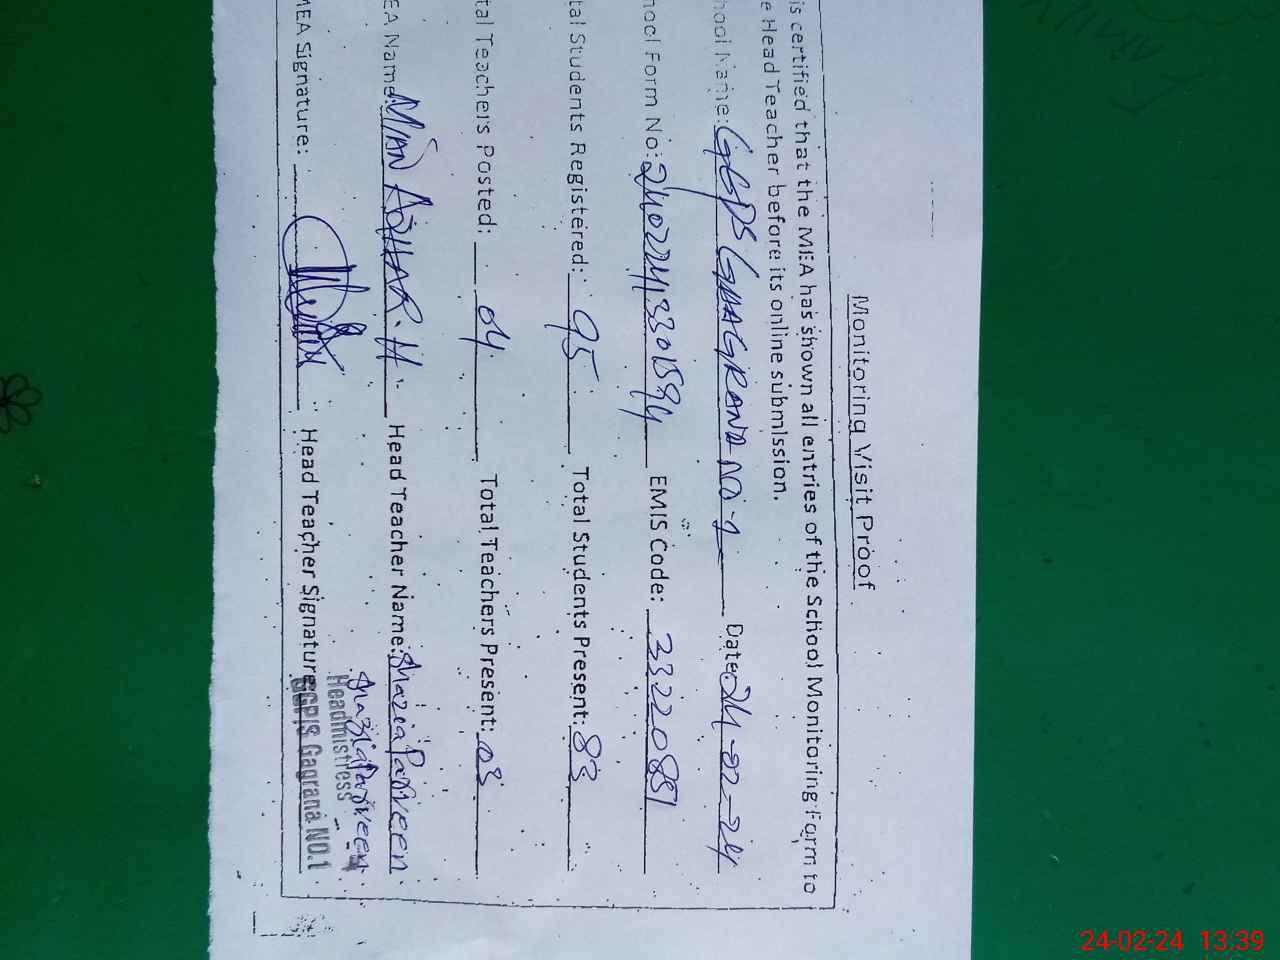 Monitoring Visit Proof
is certified that the MEA has shown all entries of the School Monitoring Form to
e Head Teacher before its online submission.
hool Name: GGPS GAGRANA NO-1 Date: 24-02-24
hool Form No: EMIS Code: 33220881
tal Students Registered: 95 Total Students Present: 83
tal Teachers Posted: 04 Total Teachers Present: 03
EA Name: MIAN AZHAR. H Head Teacher Name: Shazia Parveen
Shazia Parveen
MEA Signature: Head Teacher Signature:
Headmistress
GGP/S Gagrana NO.1
24-02-24 13:39